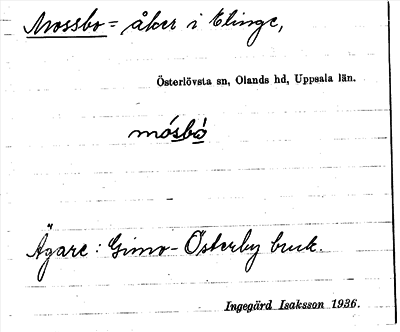 Mossbo = åker i Elinge,
Österlövsta sn, Olands hd, Uppsala län.
mósbó
Ägare : Gimo - Österby bruk.
Ingegärd Isaksson 1936.